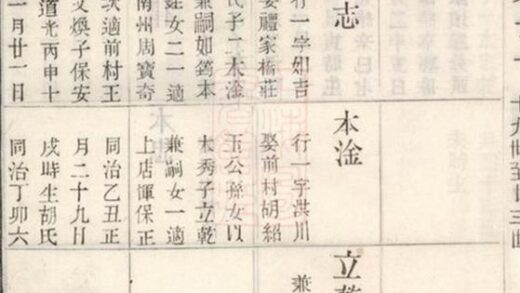 十九世至廿三世
志
行一字如吉
娶禮家橋莊
氏子二本淦
兼嗣如筠本
女二一適
南州周寶奇
次適前村王
文煥子保安
道光丙申十
一月廿一日
本淦
行一字洪川
娶前村胡紹
玉公孫女以
本秀子立乾
兼嗣女一適
上店惲保正
同治乙丑正
月二十九日
戌時生胡氏
同治丁卯六
立乾
兼